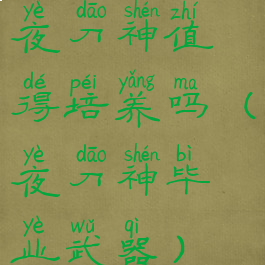 yè dāo shén zhí
夜刀神值
dé péi yǎng ma
得培养吗（
yè dāo shén bì
夜刀神毕
yè wǔ qì
业武器）